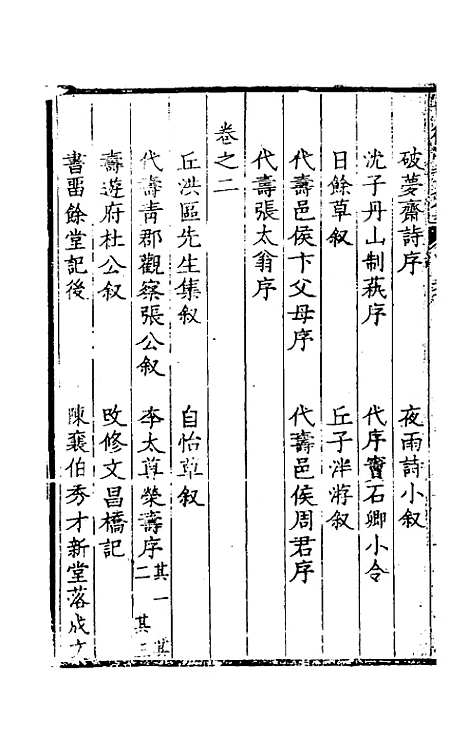 破夢齋詩序　夜雨詩小叙
沈子丹山制萟序　代序竇石卿小令
日餘草叙　丘子泮游叙
代壽邑侯卞父母序　代壽邑侯周君序
代壽張太翁序
卷之二
丘洪區先生集叙　自怡草叙
代壽青郡觀察張公叙　李太尊榮壽序 其一 其二 其三
壽遊府杜公叙　改修文昌橋記
書畱餘堂記後　陳襄伯秀才新堂落成文